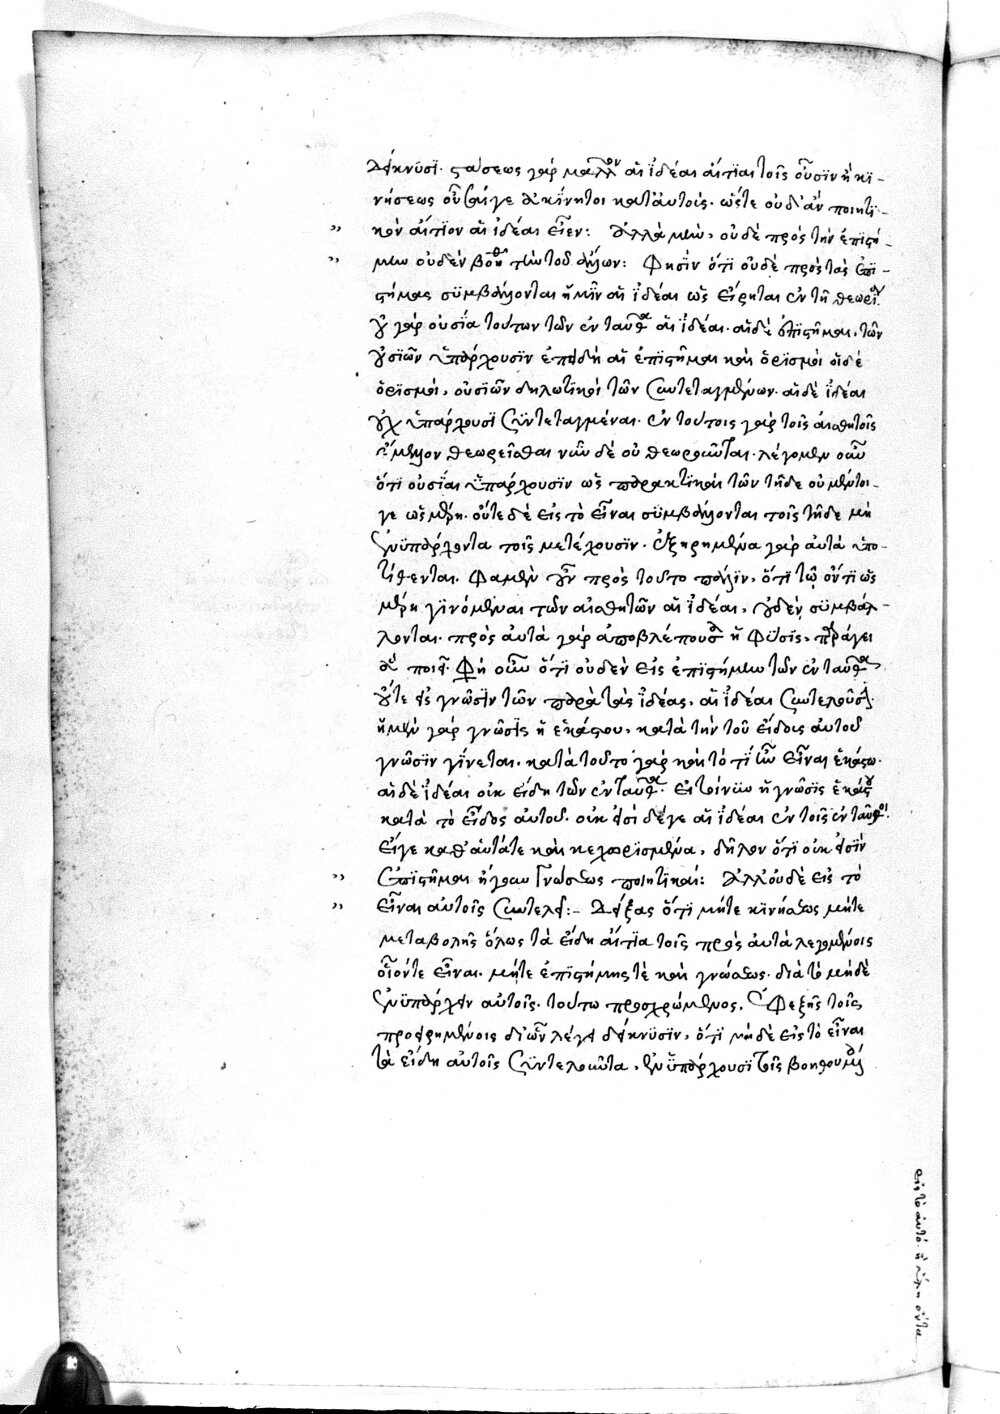 δείκνυσι. στάσεως γὰρ μᾶλλον αἱ ἰδέαι αἴτιαι τοῖς οὖσιν ἢ κι-
νήσεως οὖσαί γε ἀκίνητοι κατ' αὐτούς. ὥστε οὐδ' ἂν ποιητι-
κὸν αἴτιον αἱ ἰδέαι εἶεν: Ἀλλὰ μὴν, οὐδὲ πρὸς τὴν ἐπιστή-
μην οὐδὲν βοηθεῖ τὴν τῶν ἄλλων: Φησὶν ὅτι οὐδὲ πρὸς τὰς ἐπι-
στήμας συμβάλλονται ἡμῖν αἱ ἰδέαι ὡς εἴρηται ἐν τῇ θεωρίᾳ.
οὐ γὰρ οὐσία τούτων τῶν ἐνταῦθα αἱ ἰδέαι. αἱ δὲ ἐπιστῆμαι, τῶν
οὐσιῶν ὑπάρχουσιν ἐπειδὴ αἱ ἐπιστῆμαι καὶ ὁρισμοὶ οἱ δὲ
ὁρισμοὶ, οὐσιῶν δηλωτικοὶ τῶν συντεταγμένων. αἱ δὲ ἰδέαι
οὐχ ὑπάρχουσι συντεταγμέναι. ἐν τούτοις γὰρ τοῖς αἰσθητοῖς
ἔμελλον θεωρεῖσθαι νῦν δὲ οὐ θεωροῦνται. λέγομεν οὖν
ὅτι οὐσίαι ὑπάρχουσιν ὡς πρακτικαὶ τῶν τῇδε οὐ μέντοι-
γε ὡς μέρη. οὔτε δὲ εἰς τὸ εἶναι συμβάλλονται τοῖς τῇδε μὴ
ἐνυπάρχοντα τοῖς μετέχουσιν. ἐξῃρημένα γὰρ αὐτὰ ὑπο-
τίθενται. Φαμὲν οὖν πρὸς τοῦτο πάλιν, ὅτι τῷ ὄντι ὡς
μέρη γινόμεναι τῶν αἰσθητῶν αἱ ἰδέαι, οὐδὲν συμβάλ-
λονται. πρὸς αὐτὰ γὰρ ἀποβλέπουσα ἡ φύσις, παράγει
καὶ ποιεῖ. Φησὶ οὖν ὅτι οὐδὲν εἰς ἐπιστήμην τῶν ἐνταῦθα
οὔτε εἰς γνῶσιν τῶν παρὰ τὰς ἰδέας, αἱ ἰδέαι συντελοῦσι.
ἡ μὲν γὰρ γνῶσις ἡ ἑκάστου, κατὰ τὴν τοῦ εἴδους αὐτοῦ
γνῶσιν γίνεται. κατὰ τοῦτο γὰρ καὶ τὸ τί ἦν εἶναι ἑκάστῳ.
αἱ δὲ ἰδέαι οὐκ εἴδη τῶν ἐνταῦθα. εἰ τοίνυν ἡ γνῶσις ἑκάστου
κατὰ τὸ εἶδος αὐτοῦ. οὐκ εἰσὶ δέ γε αἱ ἰδέαι ἐν τοῖς ἐνταῦθα.
εἴγε καθ' αὑτά τε καὶ κεχωρισμένα, δῆλον ὅτι οὐκ εἰσὶν
ἐπιστῆμαι ἤγουν γνώσεως ποιητικαί: Ἀλλ' οὐδὲ εἰς τὸ
εἶναι αὐτοῖς συντελεῖ:- Δείξας ὅτι μήτε κινήσεως μήτε
μεταβολῆς ὅλως τὰ εἴδη αἴτια τοῖς πρὸς αὐτὰ λεγομένοις
οἷόν τε εἶναι. μήτε ἐπιστήμης τὲ καὶ γνώσεως. διὰ τὸ μηδὲ
ἐνυπάρχειν αὐτοῖς. τούτῳ προσχρώμενος, ἐφεξῆς τοῖς
προειρημένοις δι' ὧν λέγει δείκνυσιν, ὅτι μηδὲ εἰς τὸ εἶναι
τὰ εἴδη αὐτοῖς συντελοῦντα, ἐνυπάρχουσι τοῖς βοηθουμένοις
εἰς τὸ αὐτό. ἡ ὕλη οὖντα